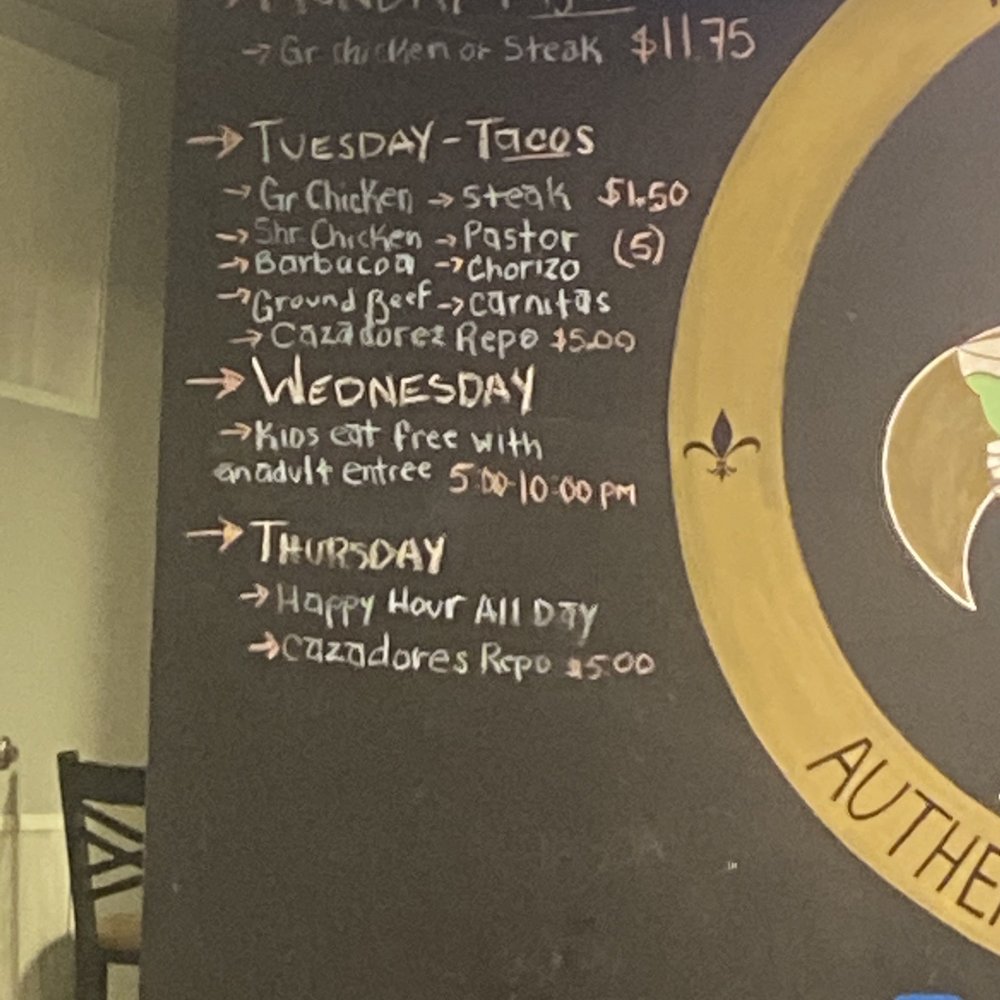 → Gr chicken or Steak $11.75
→ TUESDAY - TACOS
→ Gr Chicken → Steak $1.50
→ Shr Chicken → Pastor (5)
→ Barbacoa → Chorizo
→ Ground Beef → carnitas
→ Cazadores Repo $5.00
→ WEDNESDAY
→ Kids eat free with
an adult entree 5:00-10:00 PM
→ THURSDAY
→ Happy Hour All Day
→ Cazadores Repo $5.00
AUTHE